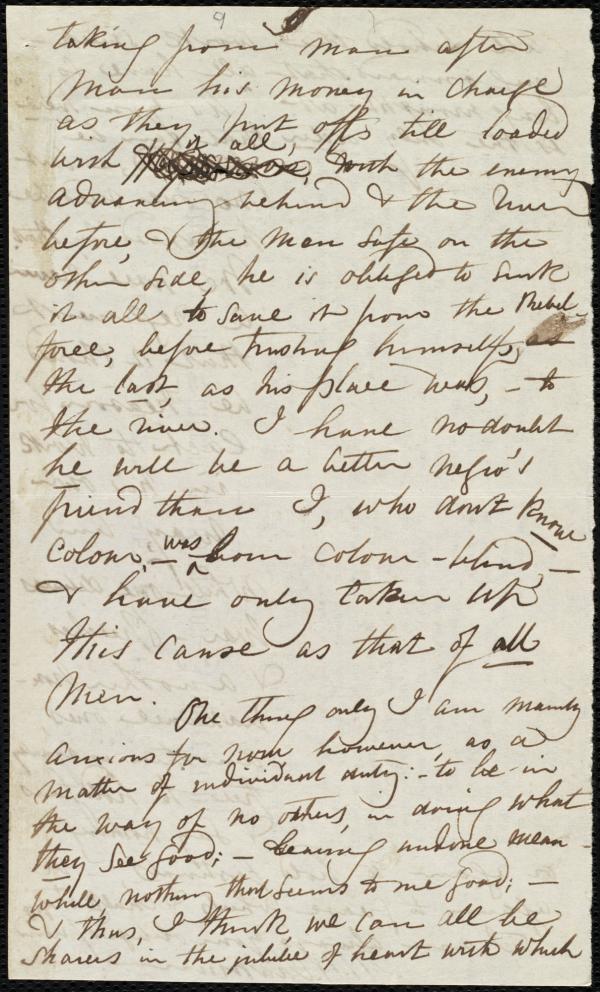 9
taking from man after
man his money in charge
as they put off, till loaded
with it all, with the enemy
advancing behind & the river
before, & the man safe on the
other side, he is obliged to sink
it all to save it from the Rebel-
force, before trusting himself, as
the last, as his place was, - to
the river. I have no doubt
he will be a better negro's
friend than I, who dont know
colour, - was born colour-blind, -
& have only taken up
this cause as that of all
men.
One thing only I am mainly
anxious for now however, as a
matter of individual duty: - to be in
the way of no others, in doing what
they see good; - leaving undone mean-
while nothing that seems to me good; -
& thus, I think, we can all be
sharers in the jubilee of heart with which